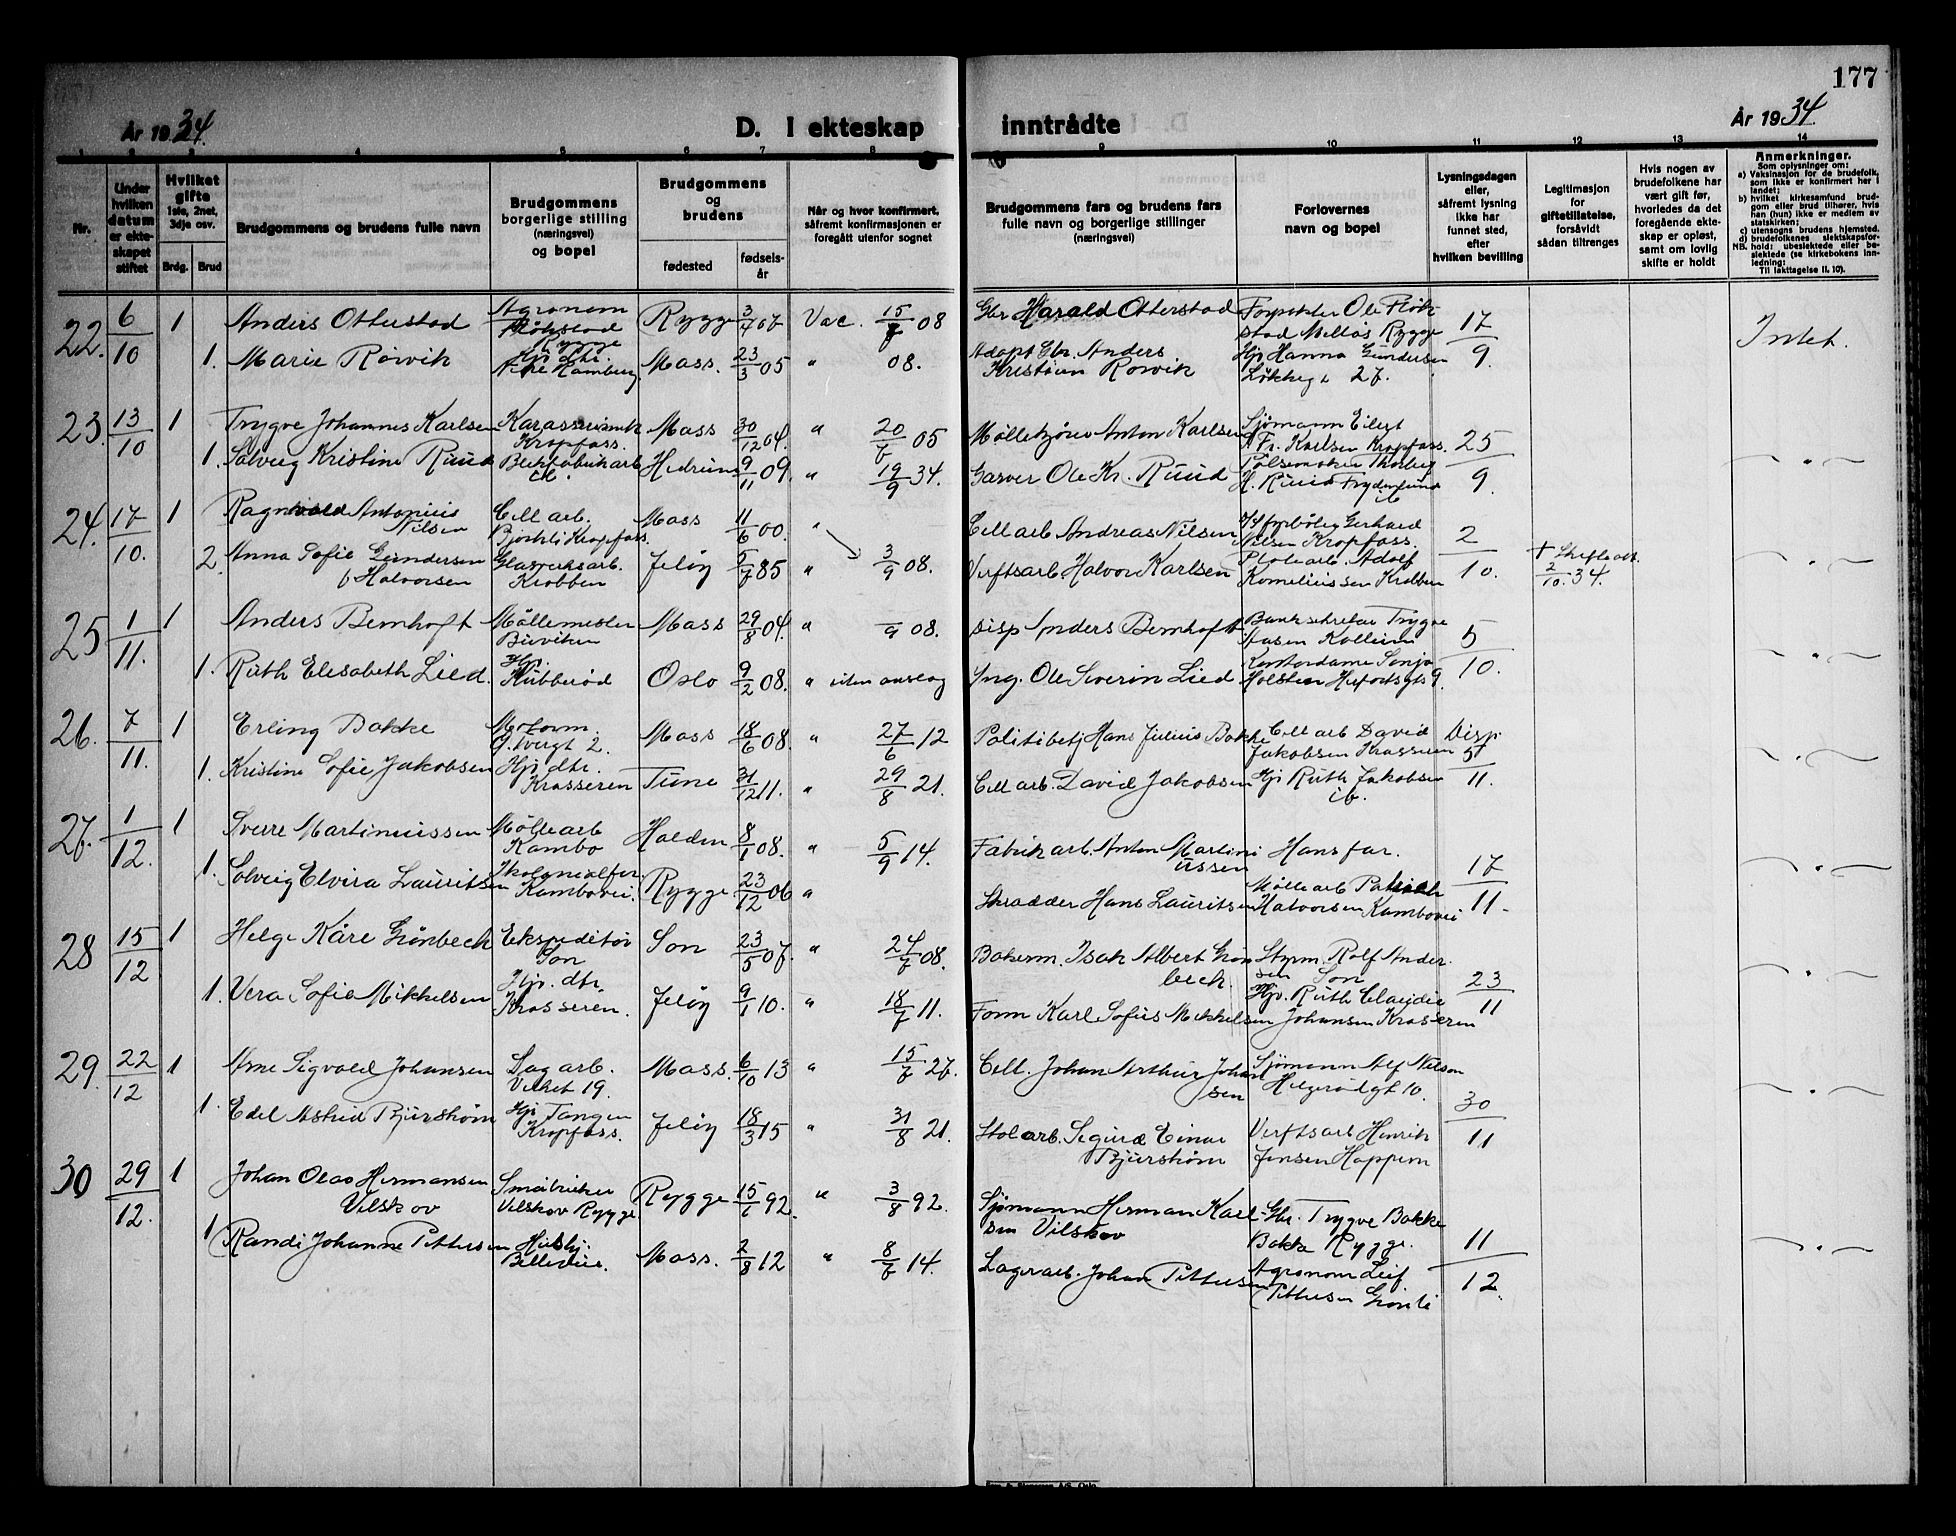 177
År 1934.
D. I ekteskap
inntrådte
År 1934.
1 2 3 4 5 6 7 8 9 10 11 12 13 14
Nr.
Under hvilken datum er ekteskapet stiftet
Hvilket gifte 1ste, 2net, 3dje osv.
Brdg. Brud
Brudgommens og brudens fulle navn
Brudgommens borgerlige stilling (næringsvei) og bopel
Brudgommens og brudens
fødested
fødselsår
Når og hvor konfirmert, såfremt konfirmasjonen er foregått utenfor sognet
Brudgommens fars og brudens fars fulle navn og borgerlige stillinger (næringsvei)
Forlovernes navn og bopel
Lysningsdagen eller, såfremt lysning ikke har funnet sted, efter hvilken bevilling
Legitimasjon for giftetillatelse, forsåvidt sådan tiltrenges
Hvis nogen av brudefolkene har vært gift før, hvorledes da det foregående ekteskap er opløst, samt om lovlig skifte er holdt
Anmerkninger.
Som oplysninger om:
a) Vaksinasjon for de brudefolk, som ikke er konfirmert her i landet;
b) hvilket kirkesamfund brudgom eller brud tilhører, hvis han (hun) ikke er medlem av statskirken;
c) utensogns brudens hjemsted.
d) brudefolkenes slektskapsforhold: ubeslektede eller beslektede (se kirkebokens innledning:
NB. Til iakttagelse II. 10).
22. 6/10 1 Anders Otterstad Agronom Rygge Rygge 3/7 07 Vac. 15/7 08 Gbr Harald Otterstad Ole Fløkstad Melløs Rygge 17/9 Intet.
1. Marie Rørvik Hj dtr. Nedre Kamburg Moss. 23/3 05 " 08. Adopt Gbr. Anders Kristian Rørvik Hj Hanna Gundersen Løkkegt 27.
23. 13/10 1 Trygve Johannes Karlsen Kropfoss. Moss 30/12 04. " 20/6 05 Møllekjører Anton Karlsen Sjømann Eilert Fr. Karlsen Kropfoss. 25/9 - " -
1. Solveig Kristine Ruud Hedrum 9/11 09. " 19/9 34. Garver Ole Kr. Ruud Pølsemaker Thorleif H. Ruud
24. 17/10. 1 Ragnvald Antonius Nilsen Cell arb. Kropfoss. Moss 11/6 00. " Cell arb Andreas Nilsen Gerhard Nilsen Kropfoss. 2/10. - " -
2. Anna Sofie Gundersen f Halvorsen Glasverksarb. Krobben Jeløy 5/7 85 " 3/9 08. Verftsarb. Halvor Karlsen Adolf Korneliussen Krobben + Skifteatt. 2/10. 34.
25 1/11. 1 Anders Bernhoft Møllemester Biviken Moss 29/8 04. " /9 08. Disp Anders Bernhoft Banksekretær Trygve Aasen Kolleiren 5/10. - " -
1. Ruth Elisabeth Lied. Hj. Kubberød Oslo 9/2 08. " uten opslag Ing. Ole Severin Lied Kontordame Sonja Holsten
26. 7/11. 1 Erling Bakke Motorm. Moss 18/6 08. " 27/6 12 Politibetj Hans Julius Bakke Cell arb David Jakobsen Krasseren Disp. 5/11. - " -
1. Kristine Sofie Jakobsen Hj dtr. Krosseren Tune 31/12 11. " 29/8 21. Cell arb. David Jakobsen Hj Ruth Jakobsen ib.
27. 1/12. 1 Sverre Martinussen Møllearb Kambo Halden 8/1 08. " 5/9 14. Fabrikarb. Anton Martinussen Hans far. 17/11. - " -
1. Solveig Elvira Lauritsen Kambovei. Rygge 23/12 06 " Skrædder Hans Lauritsen Møllearb Patrick Halvorsen Kambovei
28 15/12 1 Helge Kåre Grønbech Ekspeditør Son Son 23/5 07. " 24/7 08. Bakerm. Isak Albert Grønbech. Styrm. Rolf Andersen Son 23/11 - " -
1. Vera Sofie Mikkelsen Hj. dtr. Krosseren. Jeløy 9/1 10. " 18/7 11. Form Karl Sofus Mikkelsen Hj. Ruth Claudie Johansen Krosseren
29. 22/12 1 Arne Sigvald Johansen Sagarb. Verket 19. Moss. 6/10 13 " 15/7 27. Cell. Johan Arthur Johansen Sjømann Alf Nilsen Helgerødgt 10. 30/11 - " -
1. Edel Astrid Bjurstrøm Hj Tangen Kropfoss. Jeløy 18/3 15 " 31/8 21. Stolarb. Sigurd Einar Bjurstrøm Verftsarb Henrik Jensen Hoppern
30 29/12. 1 Johan Olao Hermansen Vilskov Småbruker Vilskov Rygge. Rygge 15/6 92. " 3/8 92. Sjømann Herman Karlsen Vilskov Gbr. Trygve Bakke Bakke Rygge. 11/12 - " -
1 Randi Johanne Pettersen Hushj. Bellevue. Moss. 2/8 12 " 8/7 14. Lagerarb. Johan Pettersen Agronom Leif Pettersen Grønli